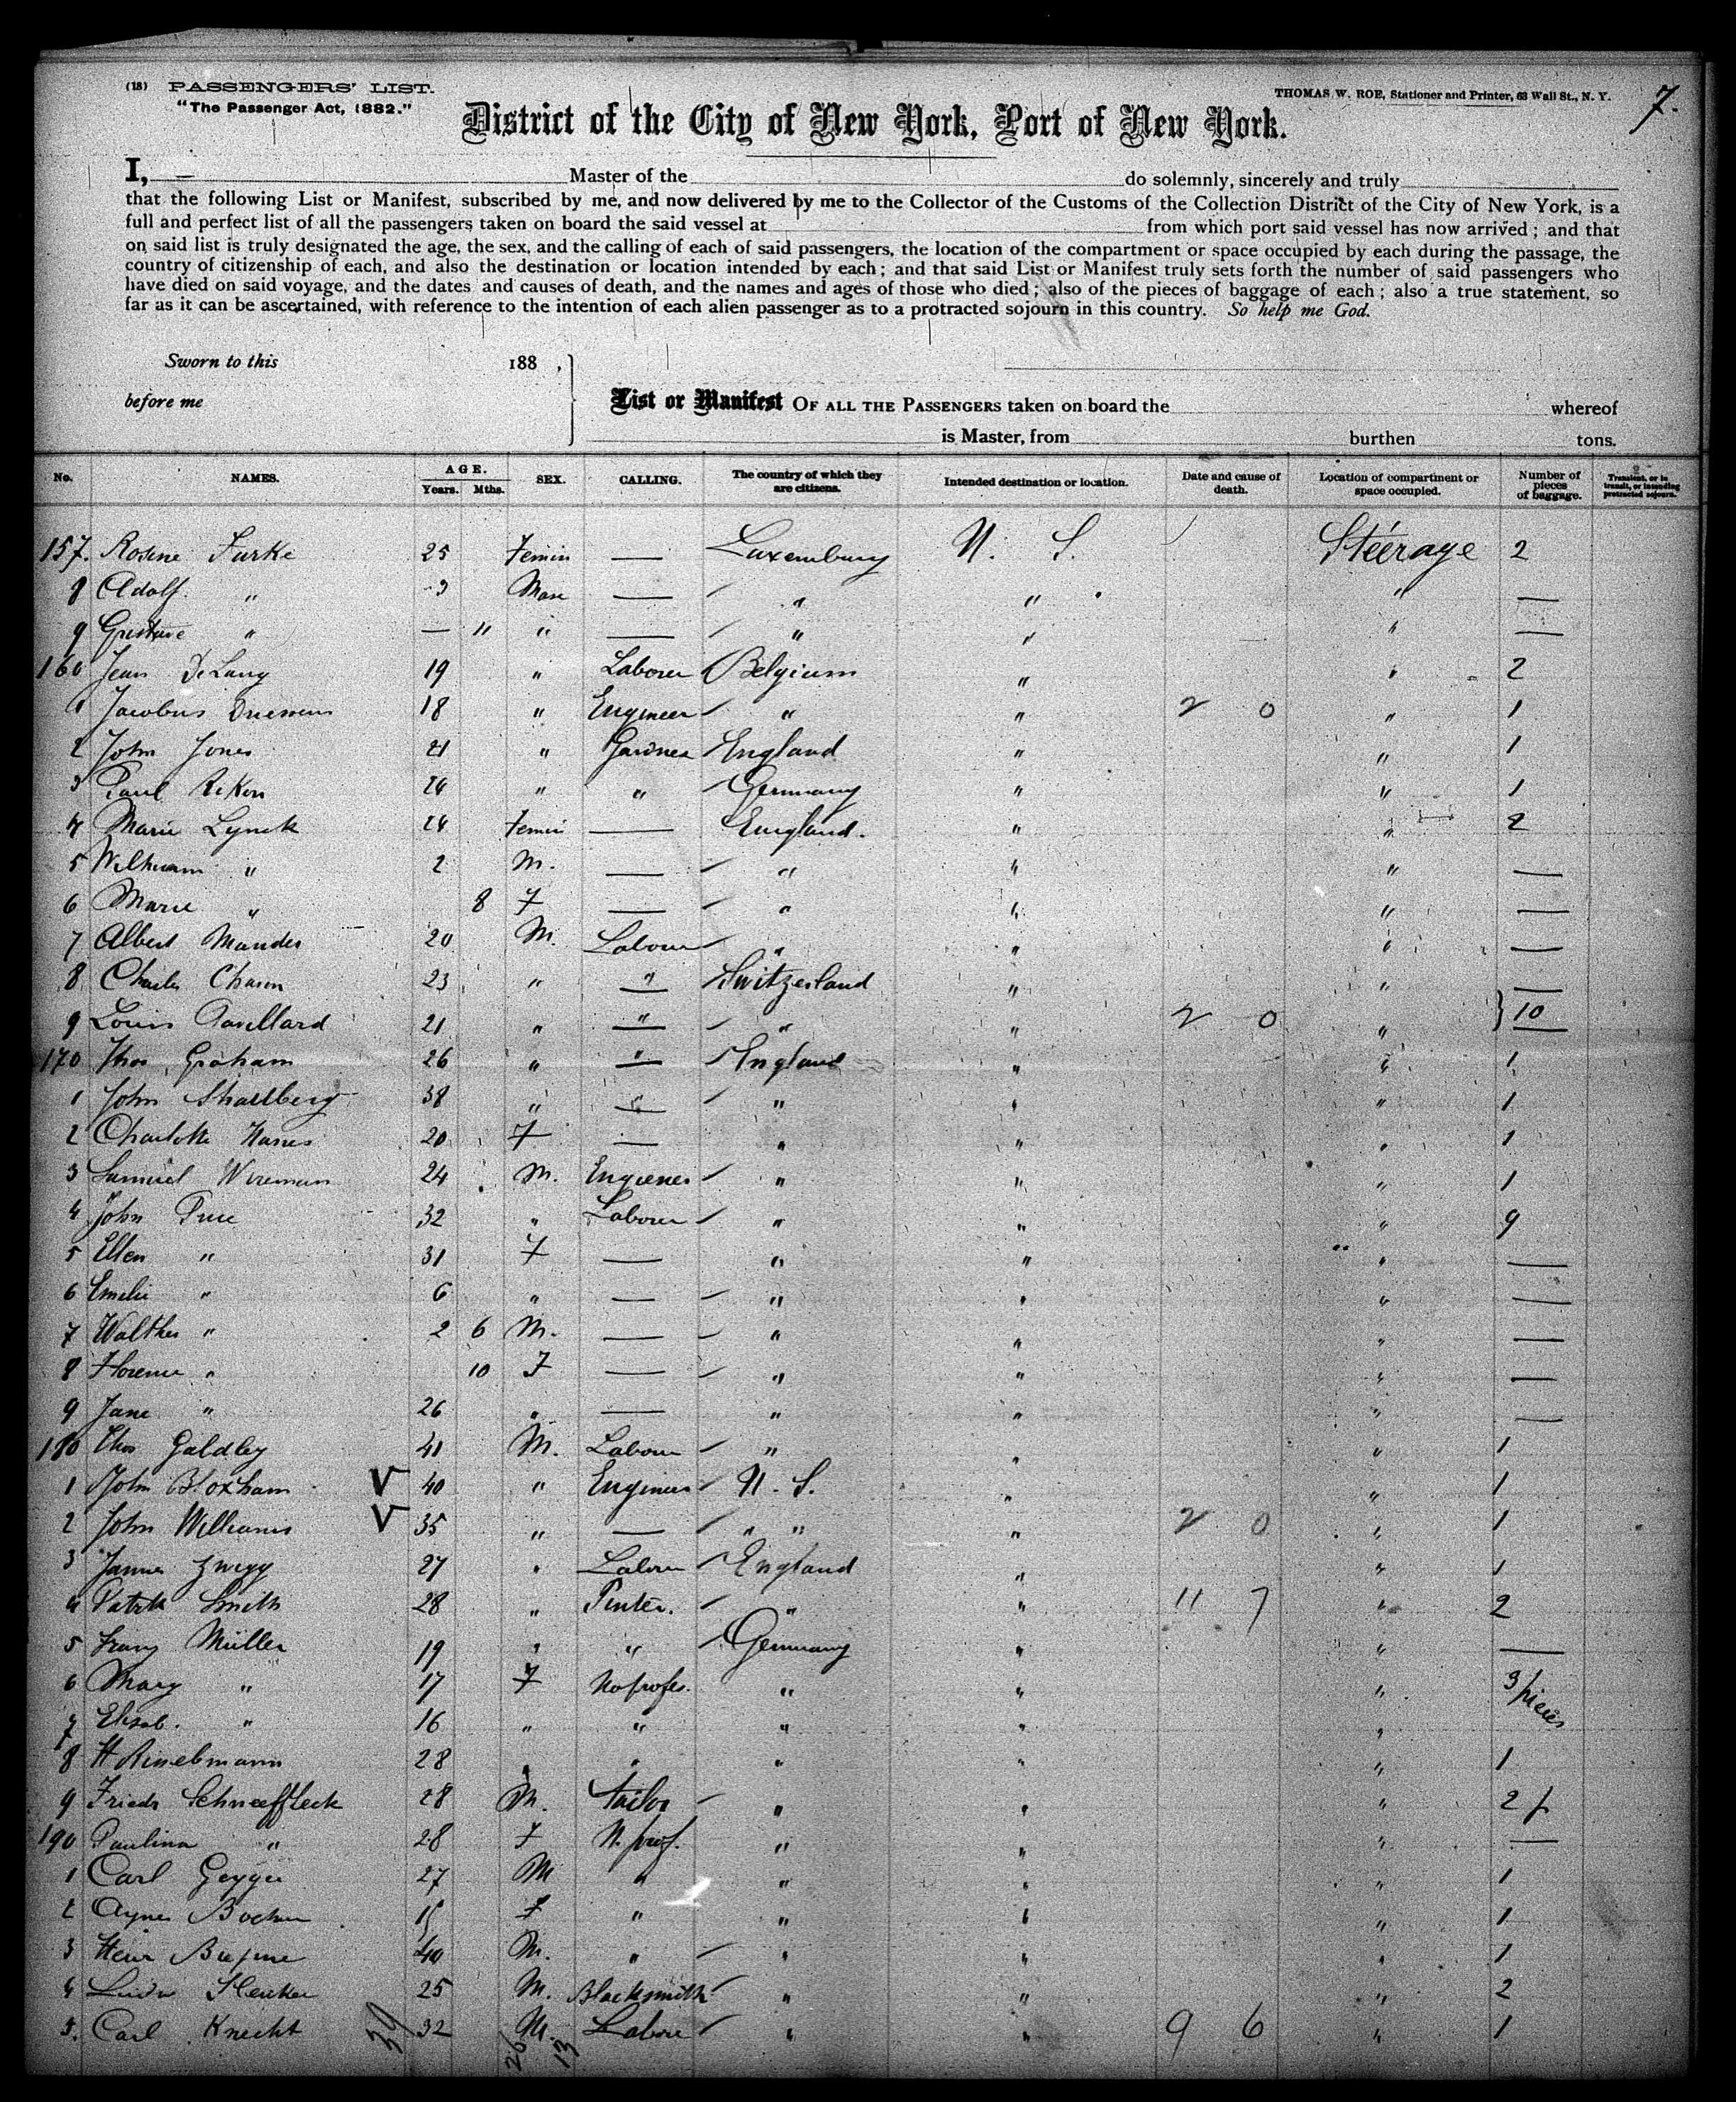 (18) PASSENGERS' LIST.
"The Passenger Act, 1882."
THOMAS W. ROE, Stationer and Printer, 63 Wall St., N. Y.
7.
District of the City of New York, Port of New York.
I, — Master of the do solemnly, sincerely and truly
that the following List or Manifest, subscribed by me, and now delivered by me to the Collector of the Customs of the Collection District of the City of New York, is a
full and perfect list of all the passengers taken on board the said vessel at from which port said vessel has now arrived; and that
on said list is truly designated the age, the sex, and the calling of each of said passengers, the location of the compartment or space occupied by each during the passage, the
country of citizenship of each, and also the destination or location intended by each; and that said List or Manifest truly sets forth the number of said passengers who
have died on said voyage, and the dates and causes of death, and the names and ages of those who died; also of the pieces of baggage of each; also a true statement, so
far as it can be ascertained, with reference to the intention of each alien passenger as to a protracted sojourn in this country. So help me God.
Sworn to this 188 ,
before me
List or Manifest OF ALL THE PASSENGERS taken on board the whereof
is Master, from burthen tons.
No. NAMES. AGE. Years. Mths. SEX. CALLING. The country of which they are citizens. Intended destination or location. Date and cause of death. Location of compartment or space occupied. Number of pieces of baggage. Transient, or in transit, or intending protracted sojourn.
157. Rosine Furke 25 Femin — Luxemburg U. S. Steerage 2
8 Adolf " 3 Masc — " " " —
9 Gustave " — 11 " — " " " —
160 Jean DeLang 19 " Laborer Belgium " " 2
1 Jacobus 18 " Engineer " " 2 0 " 1
2 John Jones 21 " England " " 1
3 Paul 24 " " Germany " " 1
4 Marie Lynck 24 Femin — England. " " 2
5 " 2 M. — " " " —
6 Marie " 8 F — " " " —
7 Albert Mander 20 M. Labour " " " —
8 Charles 23 " " Switzerland " " —
9 Louis 21 " " " " 2 0 " 10
170 Thos Graham 26 " " England " " 1
1 John 38 " " " " " 1
2 Charlotte 20 F — " " " 1
3 Samuel Wireman 24 M. Engineer " " " 1
4 John Price 32 " Laborer " " " 9
5 Ellen " 31 F — " " " —
6 Emilie " 6 " — " " " —
7 Walther " 2 6 M. — " " " —
8 Florence " 10 F — " " " —
9 Jane " 26 " — " " " —
180 Thos Goldby 41 M. Labour " " " 1
1 John Bloxham V 40 " Engineer U. S. " " 1
2 John Williams V 35 " — " " " 2 0 " 1
3 James 27 " Laborer England " " 1
4 Patrk Smith 28 " " " 11 7 " 2
5 Franz Müller 19 " " Germany " " —
6 Mary " 17 F No profes. " " " 3 pieces
7 Elisab. " 16 " " " " "
8 H 28 " " " " " 1
9 Friedr Schneeffleck 28 M. tailor " " " 2 p
190 Paulina " 28 F N. prof. " " " —
1 Carl 27 M " " " " 1
2 Agnes F " " " " 1
3 Heinr 40 M. " " " " 1
4 25 M. Blacksmith " " " 2
5. Carl Knecht 32 M. Labore " " 9 6 " 1
39 26 13